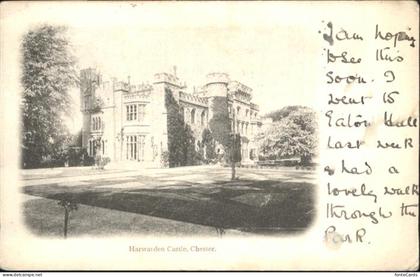 I am hoping
to see this
soon. I
went to
Eaton Hall
last week
& had a
lovely walk
through the
Park.
Harwarden Castle, Chester.